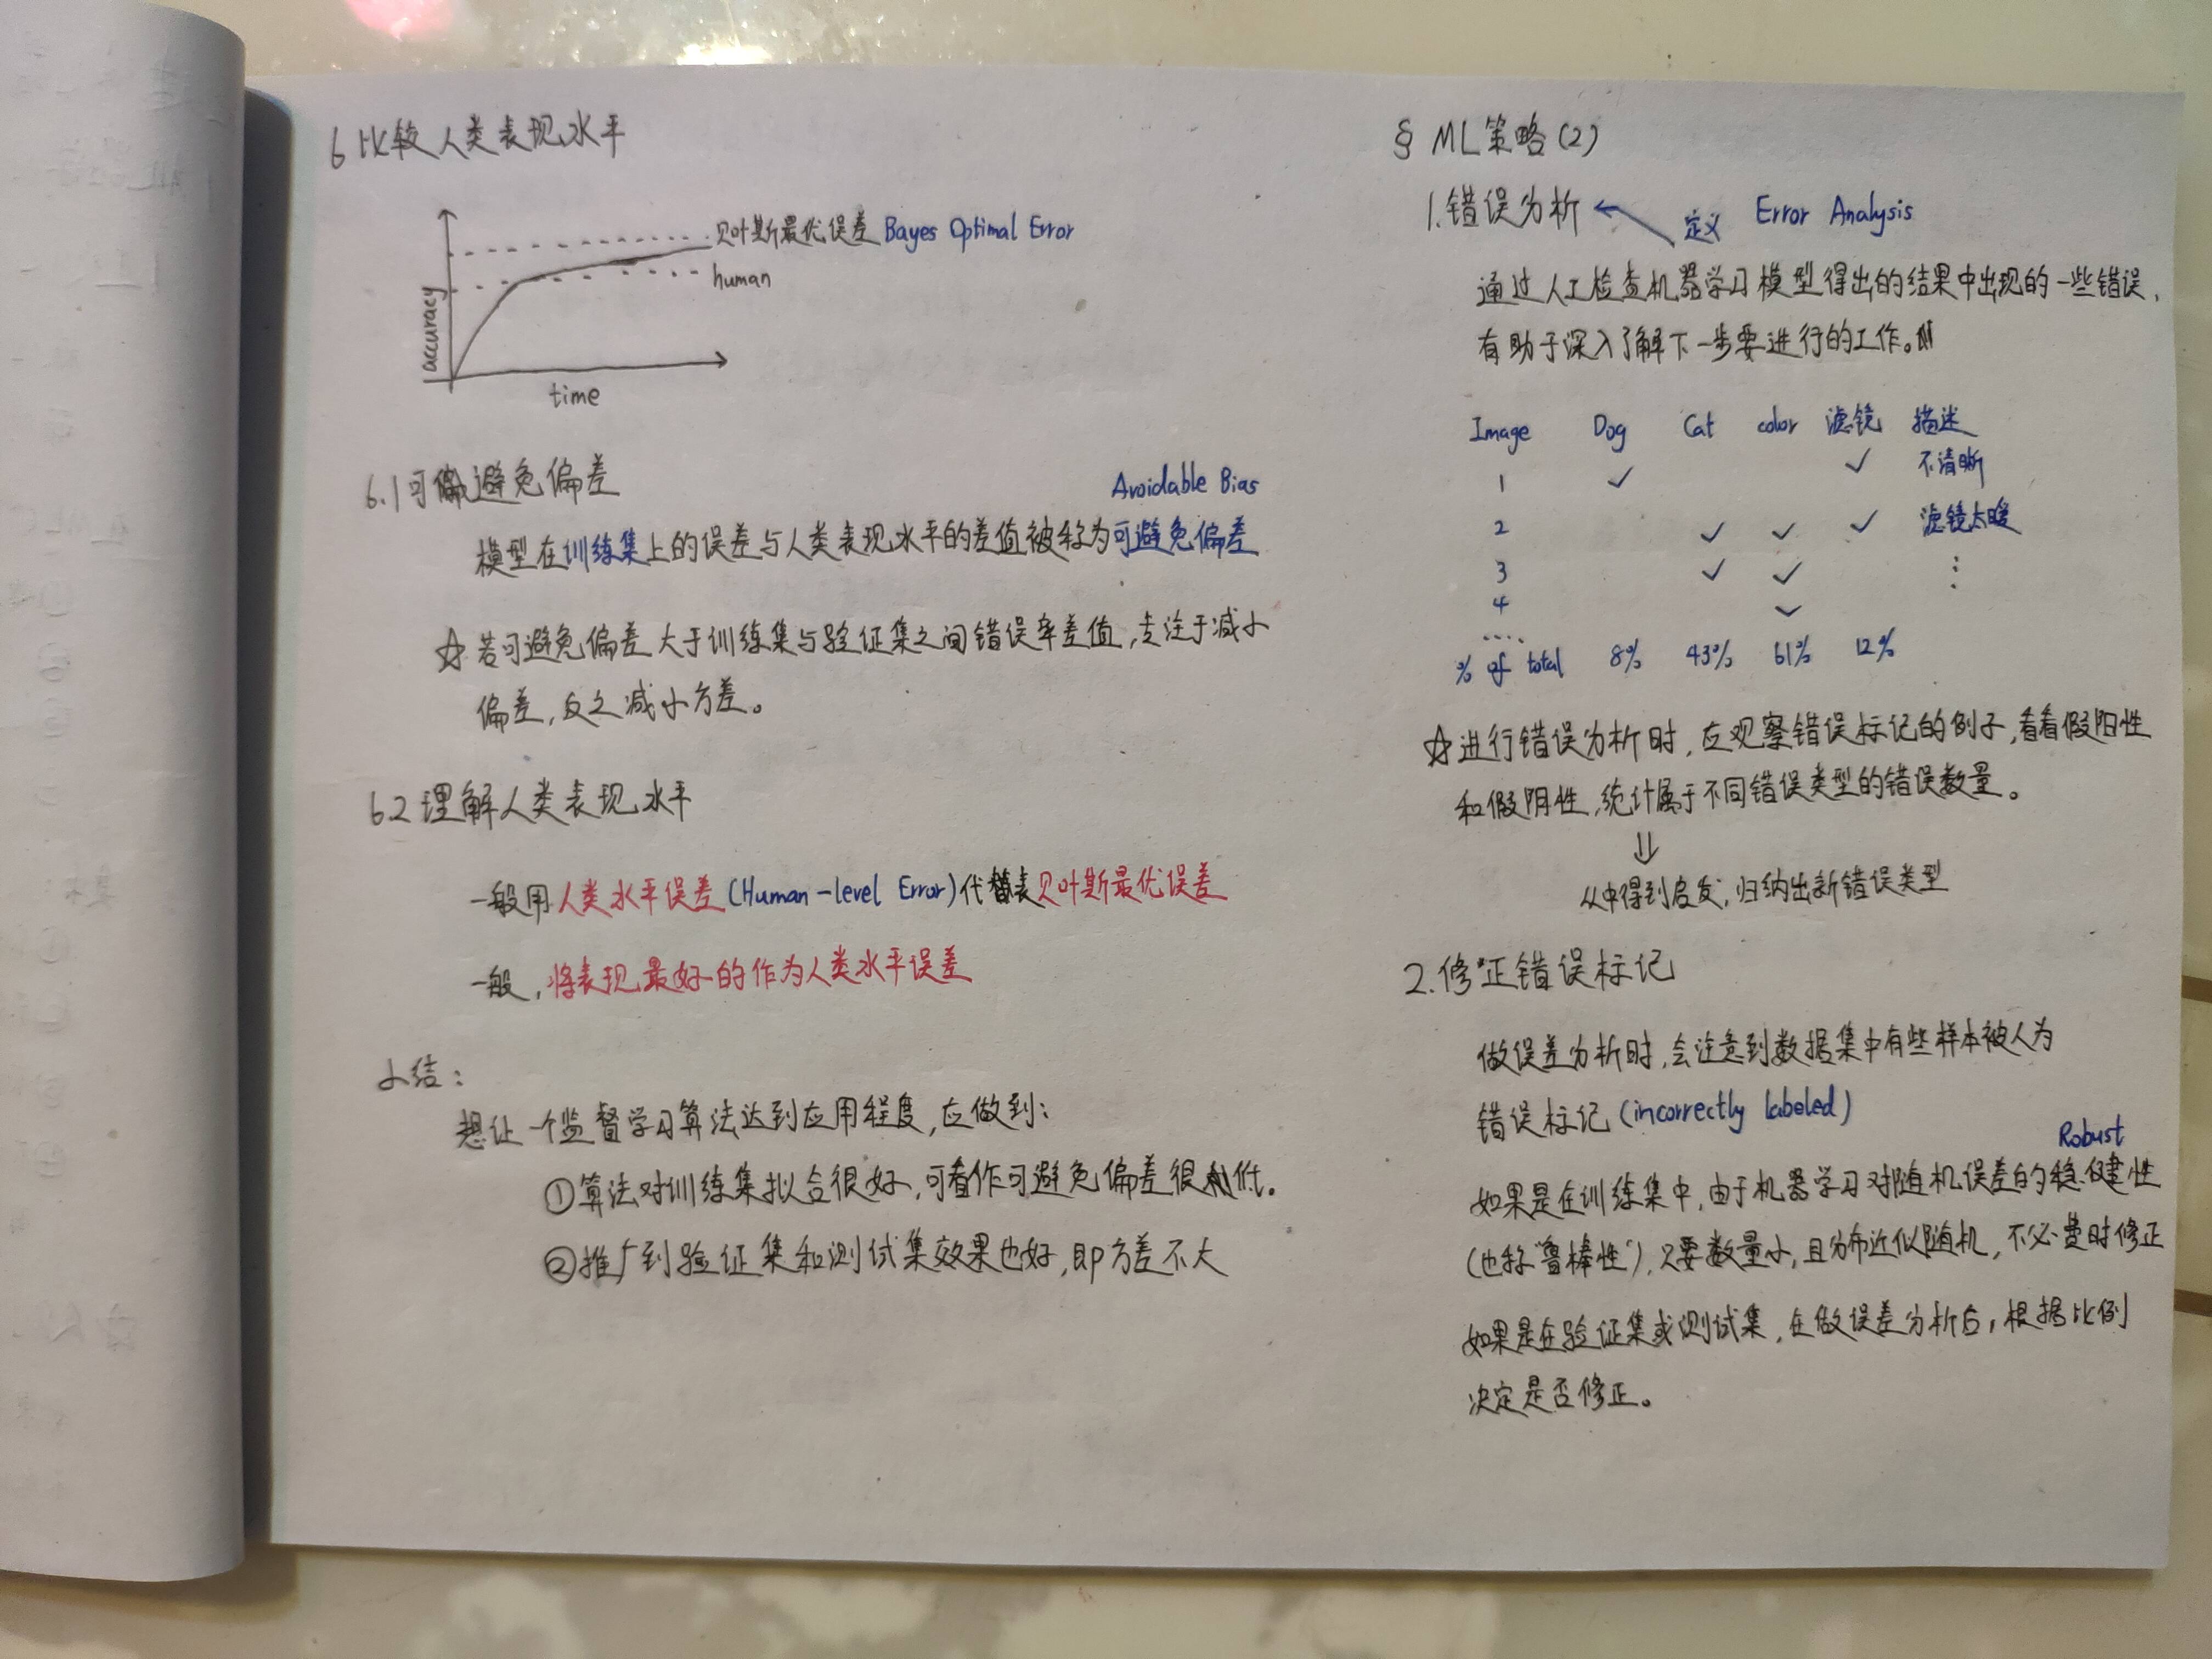 6 比较人类表现水平
贝叶斯最优误差 Bayes Optimal Error
human
accuracy
time
6.1 可避免偏差
Avoidable Bias
模型在训练集上的误差与人类表现水平的差值被称为可避免偏差
☆若可避免偏差大于训练集与验证集之间错误率差值,专注于减小
偏差,反之减小方差。
6.2 理解人类表现水平
一般用人类水平误差(Human-level Error)代替贝叶斯最优误差
一般,将表现最好的作为人类水平误差
小结:
想让一个监督学习算法达到应用程度,应做到:
①算法对训练集拟合很好,可看作可避免偏差很低。
②推广到验证集和测试集效果也好,即方差不大
§ ML策略(2)
1.错误分析 ← 定义 Error Analysis
通过人工检查机器学习模型得出的结果中出现的一些错误,
有助于深入了解下一步要进行的工作。
Image Dog Cat color 滤镜 描述
1 ✓ ✓ 不清晰
2 ✓ ✓ ✓ 滤镜太暖
3 ✓ ✓ ⋮
4 ✓
....
% of total 8% 43% 61% 12%
☆进行错误分析时,应观察错误标记的例子,看看假阳性
和假阴性,统计属于不同错误类型的错误数量。
⇓
从中得到启发,归纳出新错误类型
2.修正错误标记
做误差分析时,会注意到数据集中有些样本被人为
错误标记(incorrectly labeled)
Robust
如果是在训练集中,由于机器学习对随机误差的稳健性
(也称"鲁棒性"),只要数量小,且分布近似随机,不必费时修正
如果是在验证集或测试集,在做误差分析后,根据比例
决定是否修正。